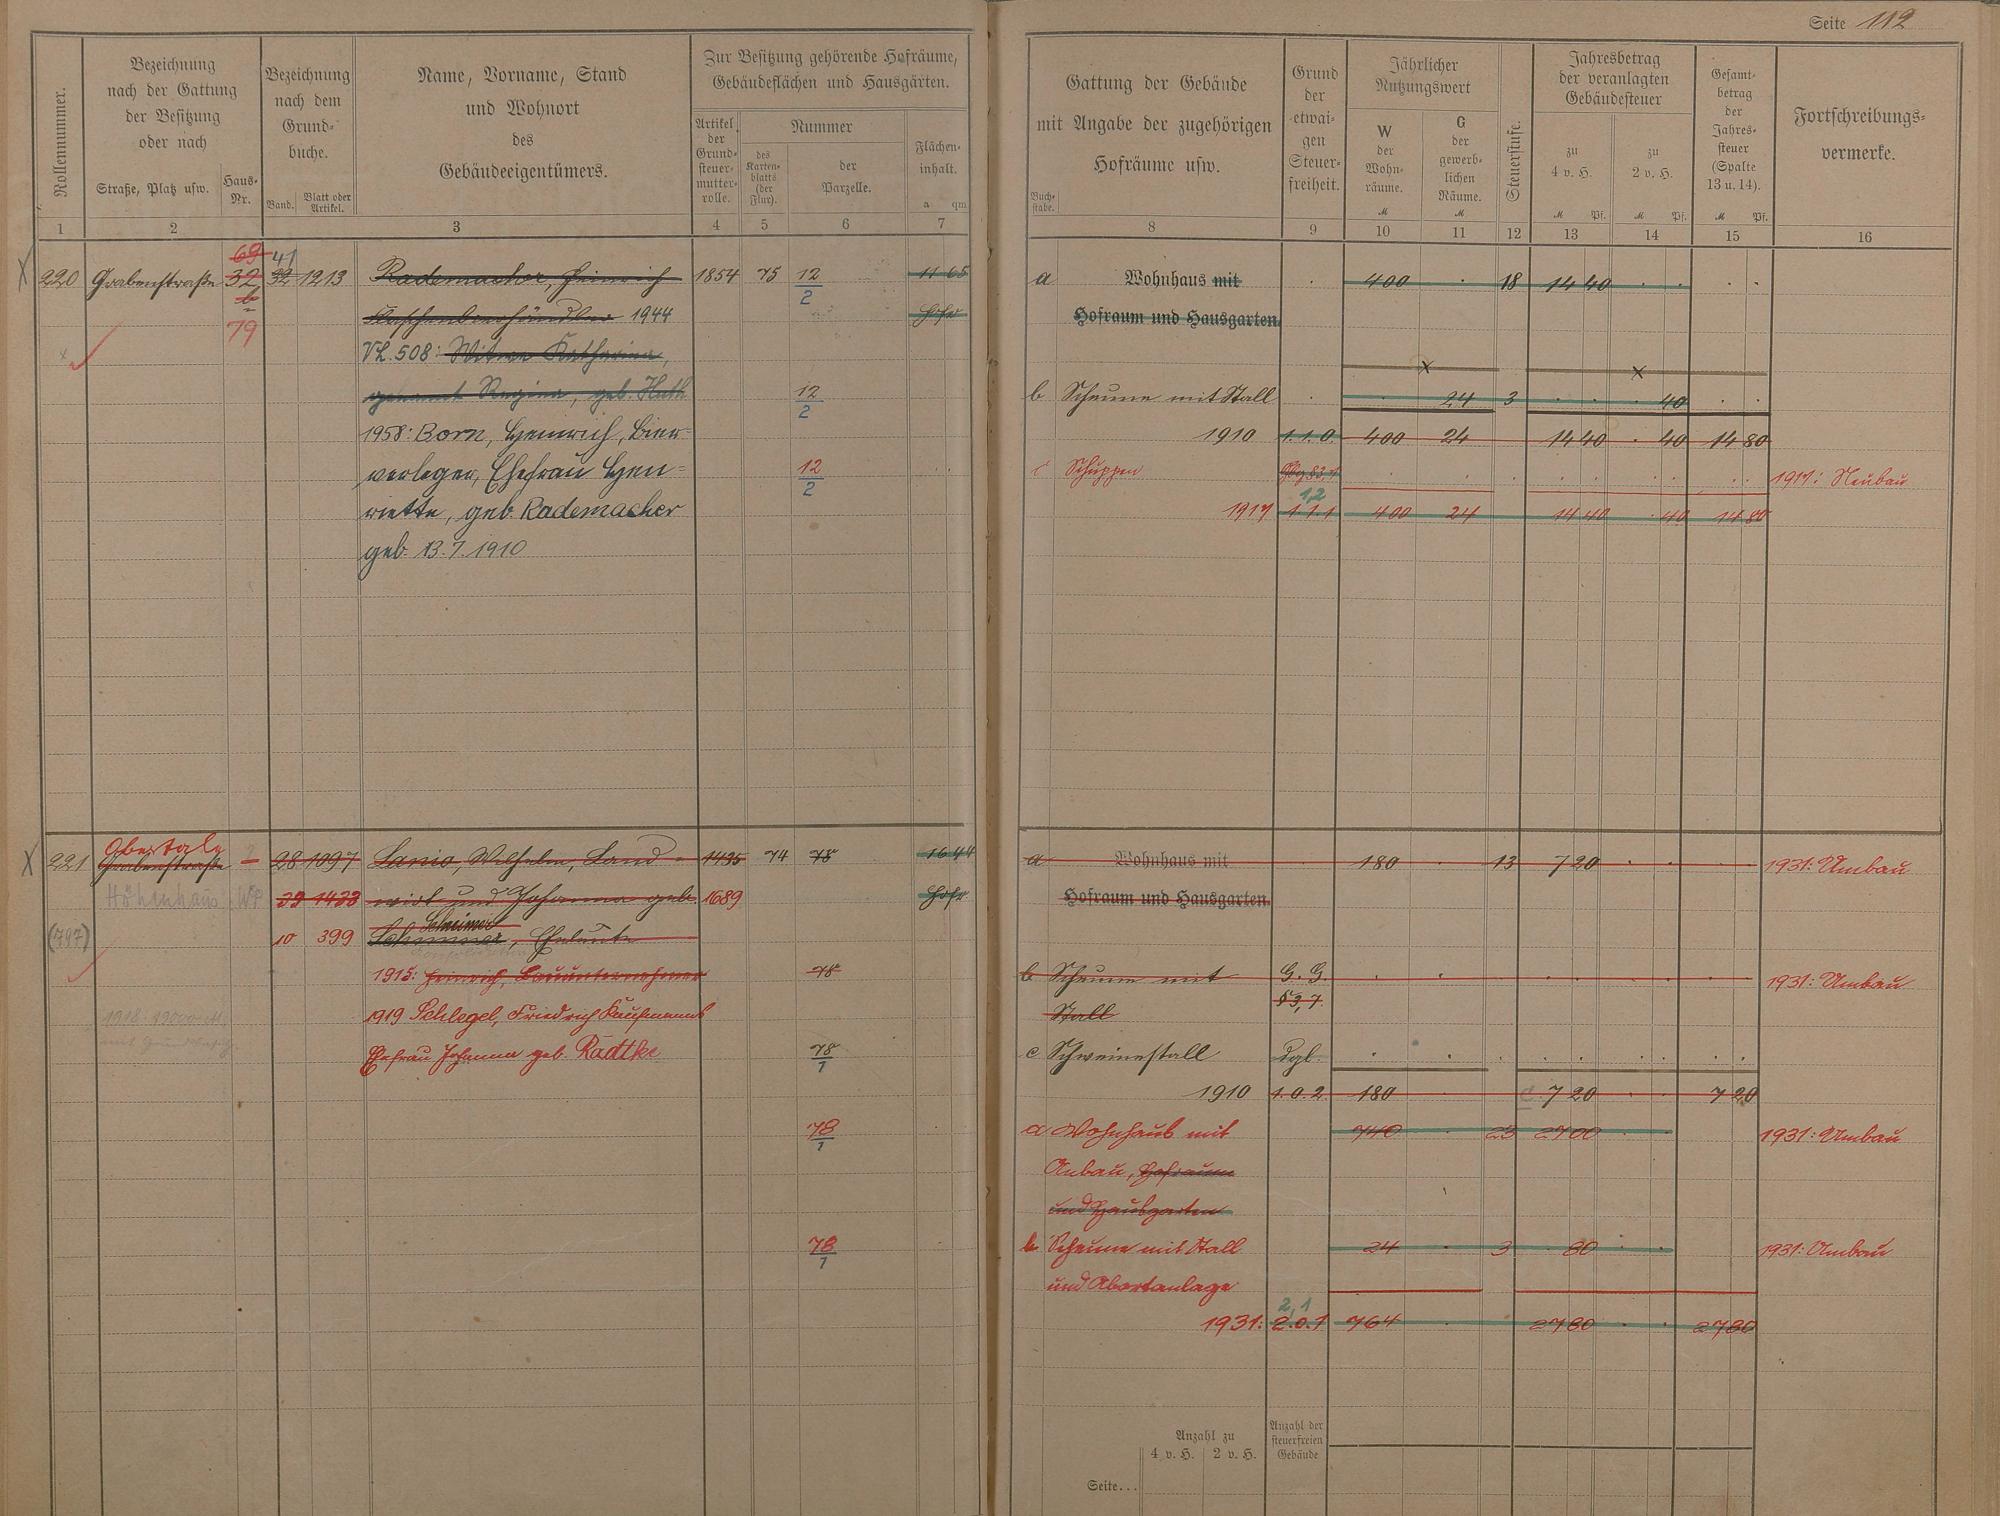 Seite 112
Rollennummer.
Bezeichnung
nach der Gattung
der Besitzung
oder nach
Straße, Platz usw.
Haus-
Nr.
Bezeichnung
nach dem
Grund-
buche.
Band.
Blatt oder
Artikel.
Name, Vorname, Stand
und Wohnort
des
Gebäudeeigentümers.
Zur Besitzung gehörende Hofräume,
Gebäudeflächen und Hausgärten.
Artikel
der
Grund-
steuer-
mutter-
rolle.
Nummer
des
Karten-
blatts
(der
Flur).
der
Parzelle.
Flächen-
inhalt.
a qm
1 2 3 4 5 6 7
69 41
220 Grabenstraße 32 32 1213 Rademacher, Heinrich 1854 75 12/2 11 65
b
Flaschenbierhändler 1944 Hofr
79
VL. 508: Witwe Katharina,
genannt Regina, geb. Huth 12/2
1958: Born, Heinrich, Bier-
verleger, Ehefrau Hen=
12/2
riette, geb. Rademacher
geb. 13.7.1910
Obertale
221 Grabenstraße – 28 1097 Lanio, Wilhelm, Land- 1435 74 78 16 44
Höhenhaus 39 1433 wirt und Johanna geb. 1689 Hofr
Scheimer
(797) 10 399 Schimmer, Eheleute
1915: Heinrich, Bauunternehmer 78
1919 Schlegel, Friedrich Kaufmanns
Ehefrau Johanna geb. Radtke 78/1
78/1
78/1
Buch-
stabe.
Gattung der Gebäude
mit Angabe der zugehörigen
Hofräume usw.
Grund
der
etwai-
gen
Steuer-
freiheit.
Jährlicher
Nutzungswert
W
der
Wohn-
räume.
M
G
der
gewerb-
lichen
Räume.
M
Steuerstufe.
Jahresbetrag
der veranlagten
Gebäudesteuer
zu
4 v. H.
M Pf.
zu
2 v. H.
M Pf.
Gesamt-
betrag
der
Jahres-
steuer
(Spalte
13 u. 14).
M Pf.
Fortschreibungs-
vermerke.
8 9 10 11 12 13 14 15 16
a Wohnhaus mit 400 18 14 40
Hofraum und Hausgarten.
x x
b Scheune mit Stall 24 3 40
1910 1.1.0. 400 24 14 40 40 14 80
c Schuppen 1917: Neubau
1,2
1917 1.1.1 400 24 14 40 40 14 80
a Wohnhaus mit 180 13 7 20 1931: Umbau
Hofraum und Hausgarten.
b Scheune mit G. G. 1931: Umbau
Stall § 3,7
c Schweinestall dgl.
1910 1.0.2. 180 7 20 7 20
a Wohnhaus mit 740 23 27 00 1931: Umbau
Anbau, Hofraum
und Hausgarten
b Scheune mit Stall 24 3 80 1931: Umbau
und Abortanlage
2,1
1931: 2.0.1 764 27 80 27 80
Anzahl zu
4 v. H. 2 v. H.
Anzahl der
steuerfreien
Gebäude
Seite...